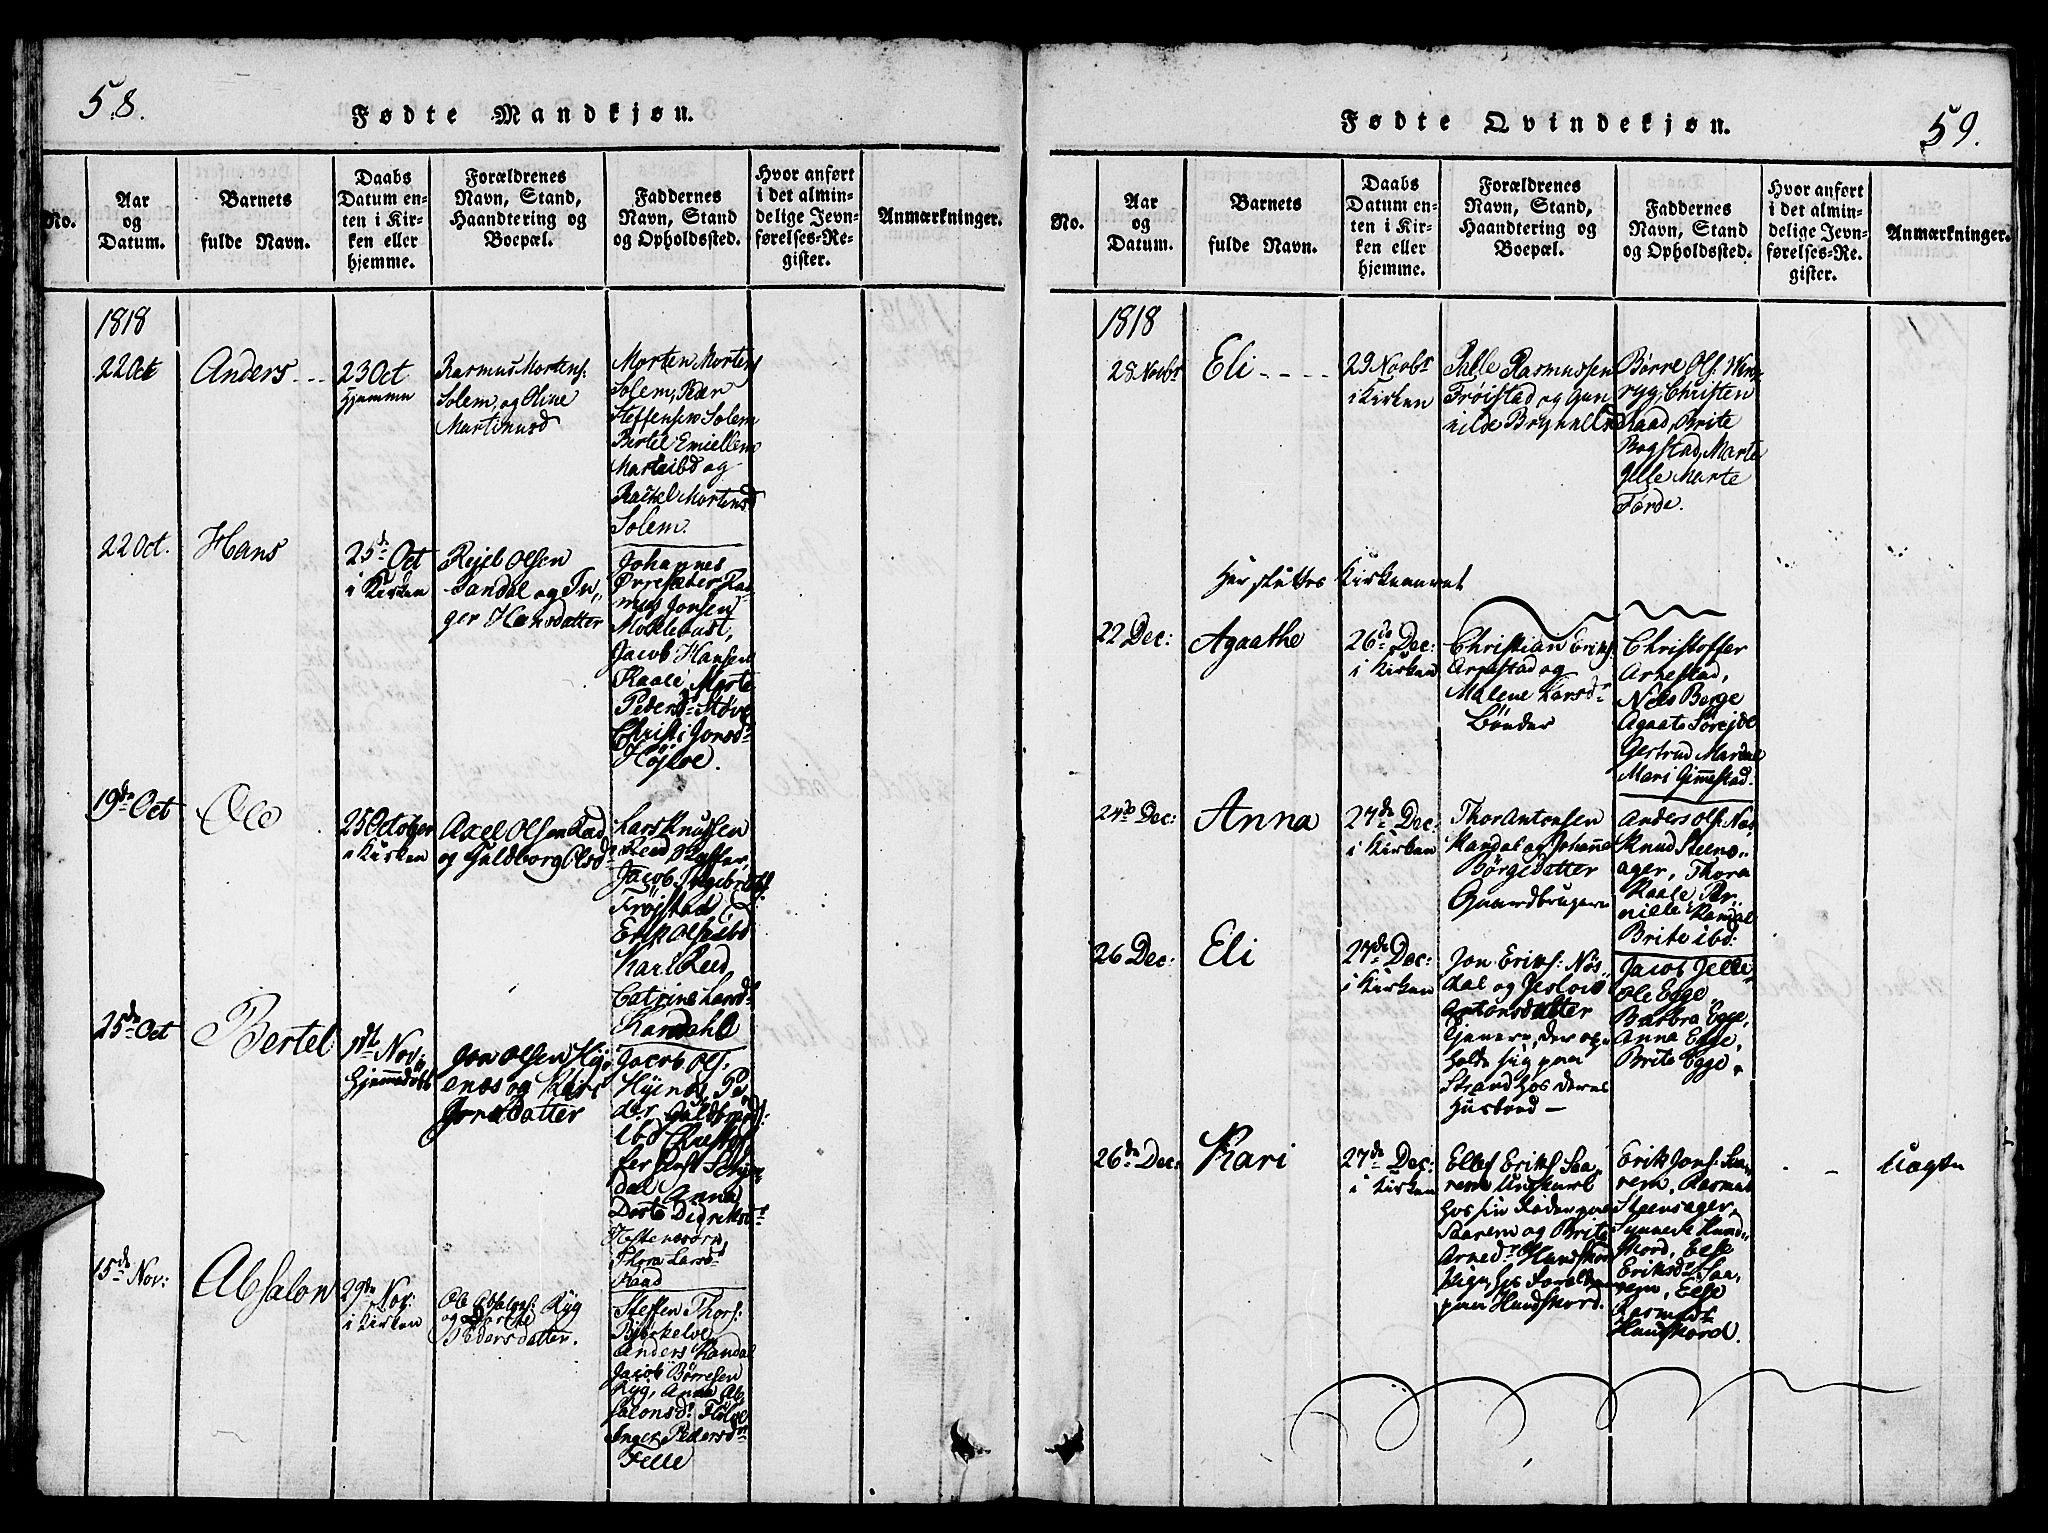 58.
Fødte Mandkjøn.
No.
Aar
og
Datum.
Barnets
fulde Navn.
Daabs
Datum en-
ten i Kir-
ken eller
hjemme.
Forældrenes
Navn, Stand,
Haandtering og
Boepæl.
Faddernes
Navn, Stand
og Opholdssted.
Hvor anført
i det almin-
delige Jevn-
førelses-Re-
gister.
Anmærkninger.
1818
22 Oct
Anders
23 Oct
Hjemme
Rasmus Mortens:
Solem, og Oline
Martinusd
Morten Mortens
Solem, Peder
Steffensen Solem
Bertel
Marte ibd og
Rachel Mortensd
Solem.
22 Oct.
Hans
25de Oct
i Kirken
Rejel Olsen
Sandal og In„
ger Hansdatter
Johannes
Ørresæter, Ras
mus Jonsen
Moldebust,
Jacob Hansen
Raale, Marte
Pedersd: Støve
Christi Jonsd:
Højloe.
19de Oct
Ole
25 October
i Kirken
Axel Olsen Red
og Guldborg Olsd
Lars Knutsen
Reed
Jacob Ingebret
Frøjstad
Erik Ols: ibd
Kari Reed
Catrine Larsd:
Kandahl
25de Oct
Bertel
1ste Nov:
Hjemmedøbt
Jon Olsen Hÿe
enæs og Kari
Jonsdatter
Jacob Ols:
Hyenæs, Pe
der Guldbrand:
ibd Christof
fer
dal, Anna
Dorte Didriksd:
Thora Larsd:
Raad
15de Nov:
Absalon
29de Nov:
i Kirken
Ole Absalons: Ryg
og Dorthe
Pedersdatter.
Steffen Thors:
Birkeloe
Anders Kandal
Jacob Børresen
Ryg, Anna Ab
salonsd: Fløtre
Inger Pedersd:
Felle
59.
Fødte Qvindekjøn.
No.
Aar
og
Datum.
Barnets
fulde Navn.
Daabs
Datum en-
ten i Kir-
ken eller
hjemme.
Forældrenes
Navn, Stand,
Haandtering og
Boepæl.
Faddernes
Navn, Stand
og Opholdssted.
Hvor anført
i det almin-
delige Jevn-
førelses-Re-
gister.
Anmærkninger.
1818
28 Novbr
Eli
29 Novbr
i Kirken
Palle Rasmussen
Frøistad og Gun
nilde Brynilsd
Børre Ols:
ryg, Christen
Raad, Brite
Bogstad, Marte
Jelle Marte
Førde.
Her sluttes Kirkeaaret
22 Dec:
Agaathe
26de Dec:
i Kirken
Christian Eriks:
Arnestad og
Malene Larsdr
Bønder
Christoffer
Arnestad,
Niels Berge
Agaate Sørejde
Gertrud Mardal
Mari Gimmestad.
24de Dec:
Anna
27de Dec:
i Kirken
Thor Antonsen
Kandal og Johanne
Børgedatter
Gaardbrugere
Anders Ols:
Knud Steens„
ager, Thora
Raale Per„
nille Kandal
Brite ibd:
26 Dec:
Eli
27de Dec:
i Kirken
Jon Eriks: Nos„
dal og
Antonsdatter
tjenere, der op„
holde sig paa
Strand hos deres
Husbond —
Jacob Jelle
Ole Egge
Barbra Egge,
Anna Egge,
Brite Egge.
26de Dec:
Kari
27de Dec:
i Kirken
Ellef Eriks Saa„
rem Ungkarl
hos sin Fader paa
Saarem og Brite
Arned: Hundskord
Pige, hos Forældrene
paa Hundskord.
Erik Jons: Saa„
rem, Rasmus
Steensager,
Synneve Hund„
skord, Else
Eriksd: Saa„
rem, Else
Rasmusd:
Hundskord.
Uægte